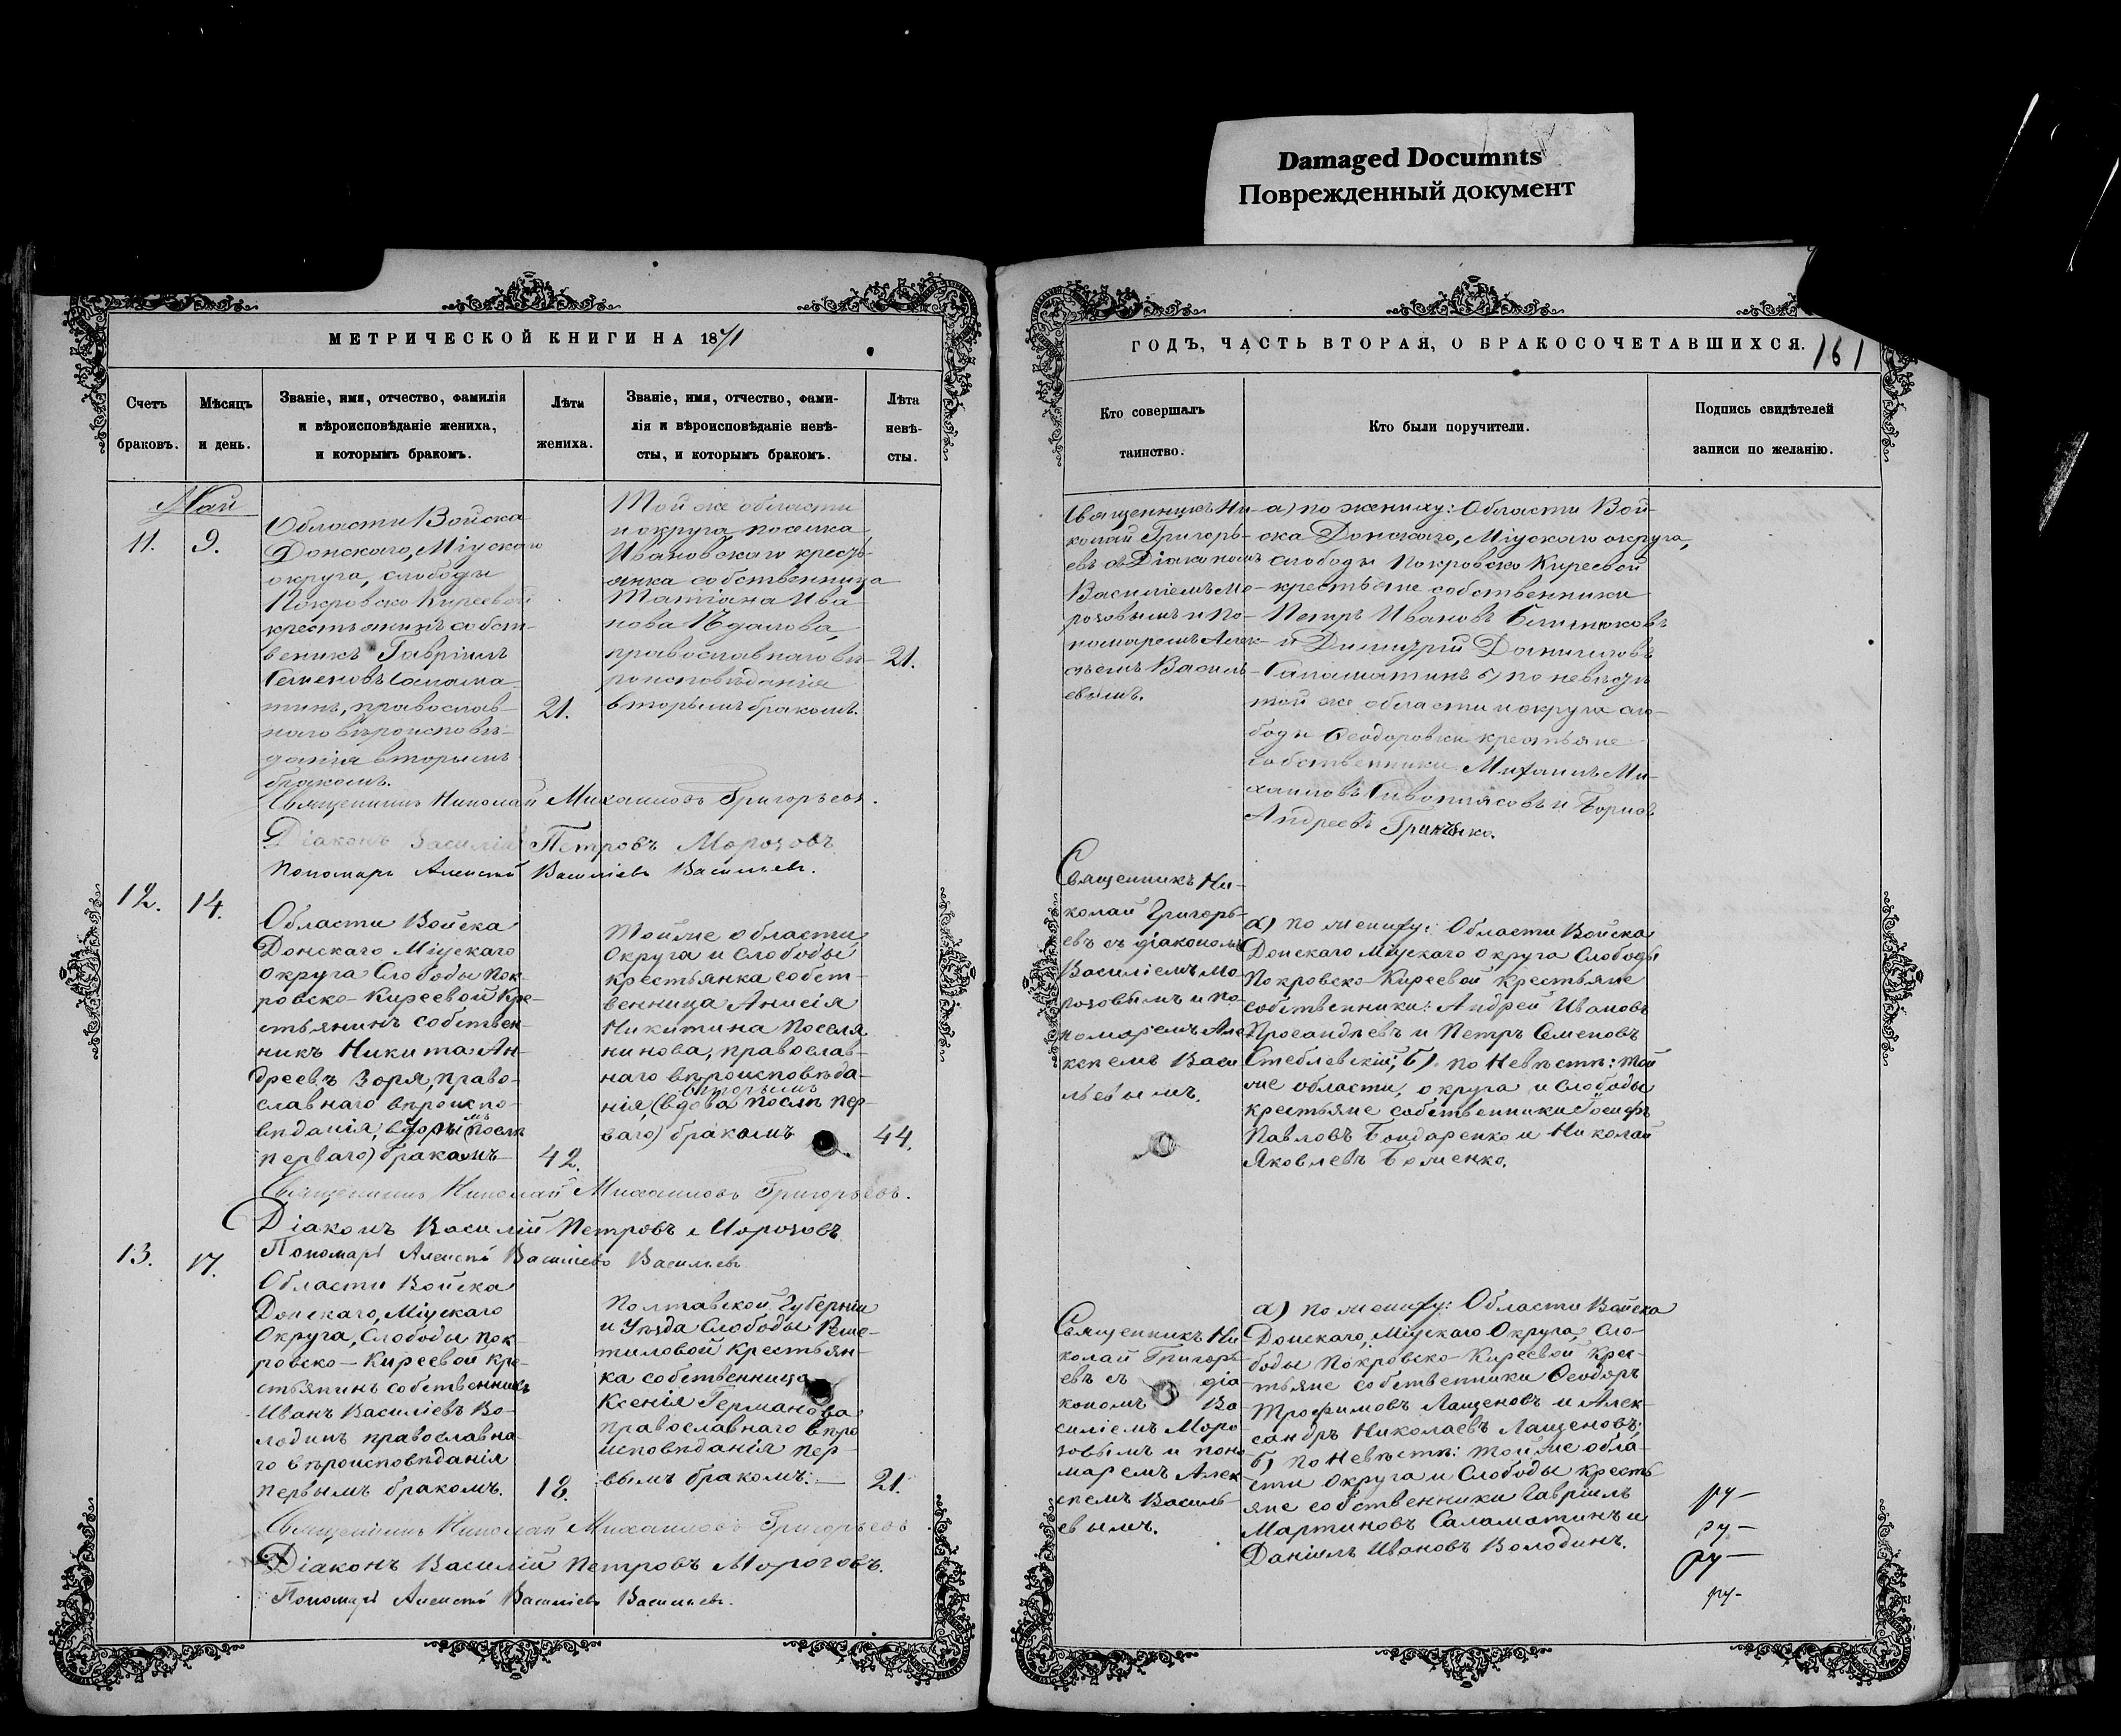 Damaged Documnts
Поврежденный документ
МЕТРИЧЕСКОЙ КНИГИ НА 1871
Счетъ браковъ.
Мѣсяцъ и день.
Званіе, имя, отчество, фамилія
и вѣроисповѣданіе жениха,
и которымъ бракомъ.
Лѣта жениха.
Званіе, имя, отчество, фами-
лія и вѣроисповѣданіе невѣ-
сты, и которымъ бракомъ.
Лѣта невѣ-
сты.
Май
11.
9.
Области Войска
Донскаго, Міускаго
округа, слободы
Покровско Киреевой
крестьянинъ собст-
веникъ Гавріилъ
Семеновъ Салама-
тинъ, православ-
наго вѣроисповѣ-
данія вторымъ
бракомъ.
21.
Той же области
и округа, поселка
Ивановскаго кресть-
янка собственница
Татіана Ива
нова
православнаго вѣ-
роисповѣданія
вторымъ бракомъ.
21.
Священникъ Николай Михаиловъ Григорьевъ.
Діаконъ Василій Петровъ Морозовъ
Пономарь Алексѣй Василіевъ Васильевъ.
12.
14.
Области Войска
Донскаго Міускаго
Округа Слободы Пок-
ровско-Киреевой Кре-
стьянинъ собствен-
никъ Никита Ан-
дреевъ Зоря, право-
славнаго вѣроиспо-
вѣданія, вторымъ (послѣ
перваго) бракомъ
42.
Той же области
Округа и Слободы
крестьянка собст-
венница Анисія
Никитина Поселя
нинова, православ-
наго вѣроисповѣда-
вторымъ
нія, (вдова послѣ пер-
ваго) бракомъ
44.
Священникъ Николай Михаиловъ Григорьевъ.
Діаконъ Василій Петровъ Морозовъ
Пономарь Алексѣй Василіевъ Васильевъ
13.
17.
Области Войска
Донскаго, Міускаго
Округа, Слободы Пок-
ровско-Киреевой Кре-
стьянинъ собственникъ
Иванъ Василіевъ Во-
лодинъ православна-
го вѣроисповѣданія
первымъ бракомъ.
18.
Полтавской Губерніи
и Уѣзда Слободы Реше-
тиловой Крестьян-
ка собственница
Ксенія Германова
православнаго вѣро
исповѣданія пер-
вымъ бракомъ.—
21.
Священникъ Николай Михаиловъ Григорьевъ
Діаконъ Василій Петровъ Морозовъ.
Пономарь Алексѣй Василіевъ Васильевъ.
ГОДЪ, ЧАСТЬ ВТОРАЯ, О БРАКОСОЧЕТАВШИХСЯ.
161
Кто совершалъ
таинство.
Кто были поручители.
Подпись свидѣтелей
записи по желанію.
Священникъ Ни-
колай Григорь-
евъ съ Діакономъ
Василіемъ Мо-
розовымъ и По-
номаремъ Алек-
сѣемъ Василь-
евымъ.
а) по жениху: Области Вой-
ска Донскаго, Міускаго округа,
слободы Покровско Киреевой
крестьяне собственники
Петръ Ивановъ
и Димитрій Даниловъ
Саламатинъ б) по невѣстѣ
той же области и округа сло-
боды Ѳеодоровки крестьяне
собственники Михаилъ Ми-
хаиловъ и Борисъ
Андреевъ
Священникъ Ни-
колай Григорь-
евъ съ діакономъ
Василіемъ Мо-
розовымъ и по-
номаремъ Але
ксѣемъ Васи
льевымъ.
а) по жениху: Области Войска
Донскаго Міускаго округа Слободы
Покровско-Киреевой крестьяне
собственники: Андрей Ивановъ
и Петръ Семеновъ
Стеблевскій; б) по Невѣстѣ: той
же области, округа и Слободы
крестьяне собственники Іосифъ
Павловъ Бондаренко и Николай
Яковлевъ
Священникъ Ни-
колай Григорь-
евъ съ діа
кономъ Ва
силіемъ Моро
зовымъ и поно
маремъ Алек-
сѣемъ Василь-
евымъ.
а) по жениху: Области Войска
Донскаго, Міускаго Округа, Сло-
боды Покровско-Киреевой крес-
тьяне собственники Ѳеодоръ
Трофимовъ Лащеновъ и Алек-
сандръ Николаевъ Лащеновъ;
б) по Невѣстѣ: той же обла-
сти Округа и Слободы кресть-
яне собственники Гавріилъ
Мартиновъ Саламатинъ и
Даніилъ Ивановъ Володинъ.
ру-
ру-
ру-
ру-